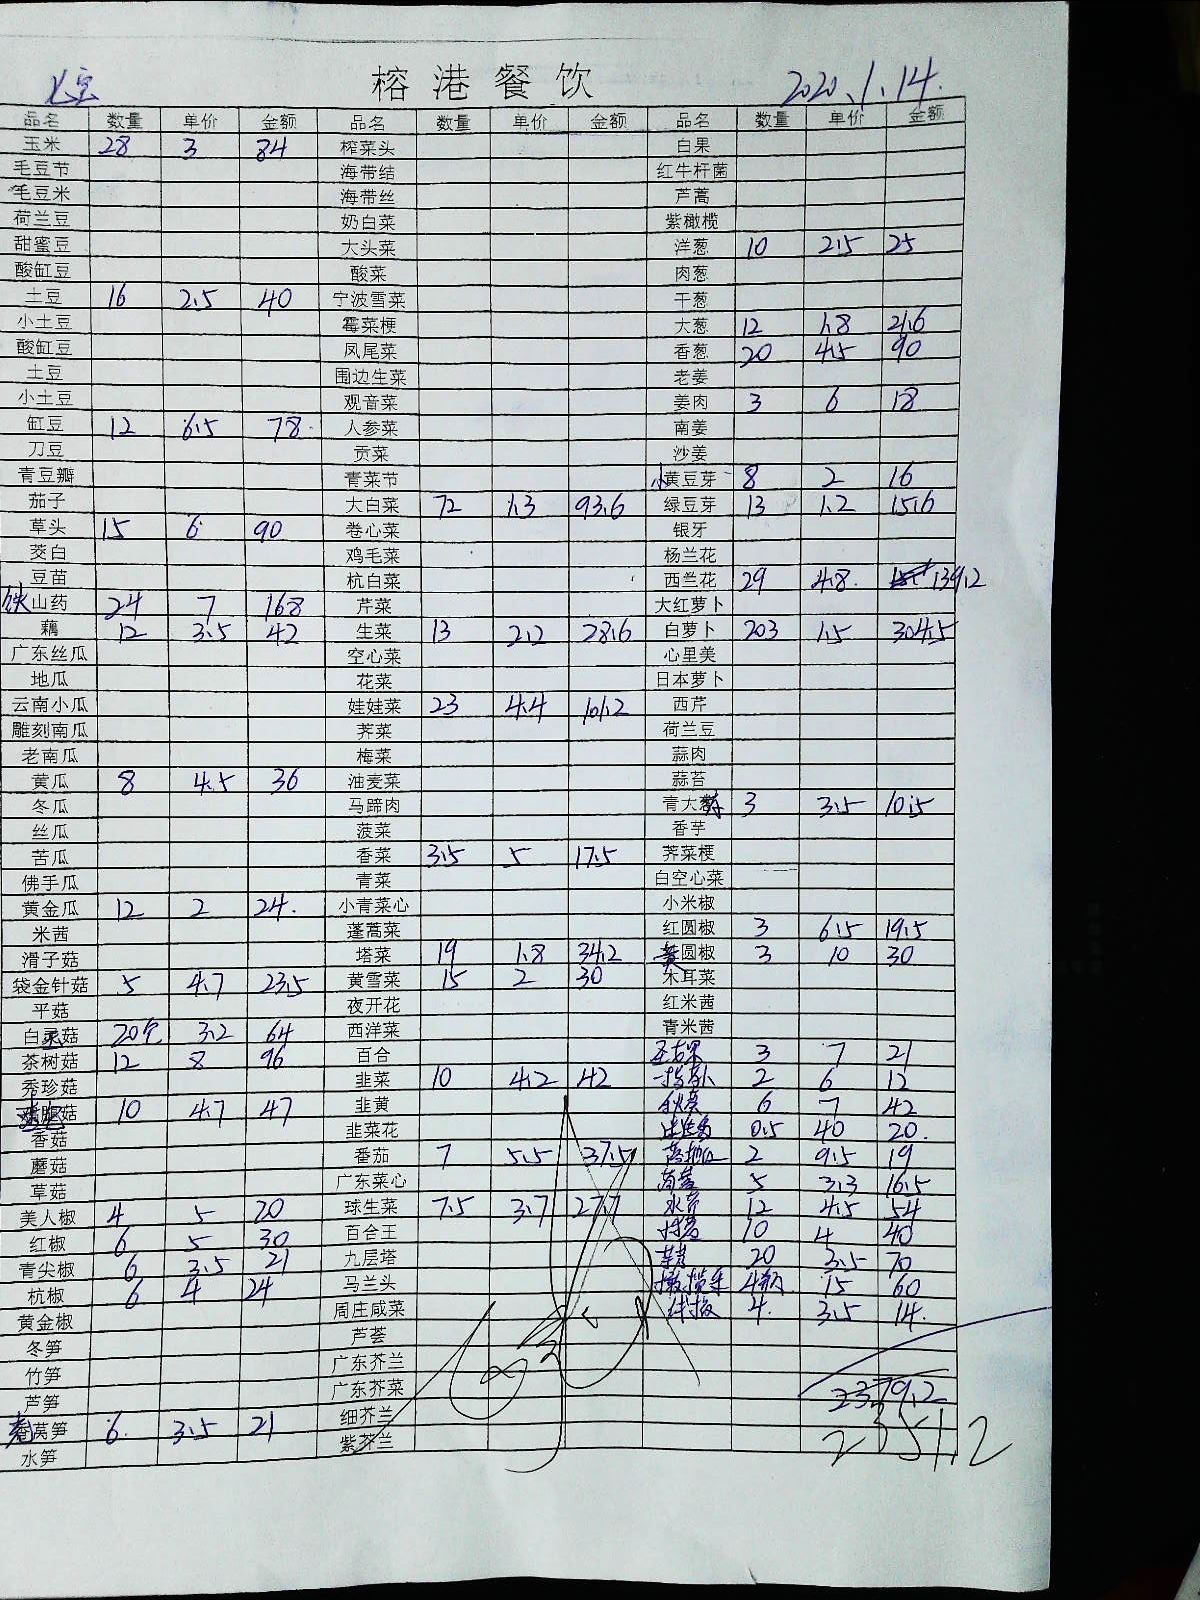 榕港餐饮
2020.1.14.
品名 数量 单价 金额 品名 数量 单价 金额 品名 数量 单价 金额
玉米 28 3 84 榨菜头 白果
毛豆节 海带结 红牛杆菌
毛豆米 海带丝 芦蒿
荷兰豆 奶白菜 紫橄榄
甜蜜豆 大头菜 洋葱 10 2.5 25
酸缸豆 酸菜 肉葱
土豆 16 2.5 40 宁波雪菜 干葱
小土豆 霉菜梗 大葱 12 1.8 21.6
酸缸豆 凤尾菜 香葱 20 4.5 90
土豆 围边生菜 老姜
小土豆 观音菜 姜肉 3 6 18
缸豆 12 6.5 78 人参菜 南姜
刀豆 贡菜 沙姜
青豆瓣 青菜节 小黄豆芽 8 2 16
茄子 大白菜 72 1.3 93.6 绿豆芽 13 1.2 15.6
草头 15 6 90 卷心菜 银牙
茭白 鸡毛菜 杨兰花
豆苗 杭白菜 西兰花 29 4.8 139.2
铁山药 24 7 168 芹菜 大红萝卜
藕 12 3.5 42 生菜 13 2.2 28.6 白萝卜 203 1.5 304.5
广东丝瓜 空心菜 心里美
地瓜 花菜 日本萝卜
云南小瓜 娃娃菜 23 4.4 101.2 西芹
雕刻南瓜 荠菜 荷兰豆
老南瓜 梅菜 蒜肉
黄瓜 8 4.5 36 油麦菜 蒜苔
冬瓜 马蹄肉 青大 3 3.5 10.5
丝瓜 菠菜 香芋
苦瓜 香菜 3.5 5 17.5 荠菜梗
佛手瓜 青菜 白空心菜
黄金瓜 12 2 24. 小青菜心 小米椒
米茜 蓬蒿菜 红圆椒 3 6.5 19.5
滑子菇 塔菜 19 1.8 34.2 黄圆椒 3 10 30
袋金针菇 5 4.7 23.5 黄雪菜 15 2 30 木耳菜
平菇 夜开花 红米茜
白灵菇 20个 3.2 64 西洋菜 青米茜
茶树菇 12 8 96 百合 圣女果 3 7 21
秀珍菇 韭菜 10 4.2 42 2 6 12
菇 10 4.7 47 韭黄 秋葵 6 7 42
香菇 韭菜花 0.5 40 20.
蘑菇 番茄 7 5.5 37.5 2 9.5 19
草菇 广东菜心 5 3.3 16.5
美人椒 4 5 20 球生菜 7.5 3.7 27.7 水芹 12 4.5 54
红椒 6 5 30 百合王 10 4 40
青尖椒 6 3.5 21 九层塔 20 3.5 70
杭椒 6 4 24 马兰头 橄榄菜 4瓶 15 60
黄金椒 周庄咸菜 4. 3.5 14.
冬笋 芦荟
竹笋 广东芥兰
芦笋 广东芥菜 2379.2
莴笋 6 3.5 21 细芥兰 2351.2
水笋 紫芥兰